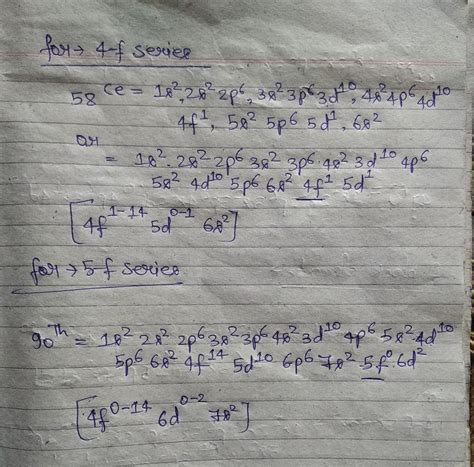 for → 4-f series
58 Ce = 1s², 2s² 2p⁶, 3s² 3p⁶ 3d¹⁰, 4s² 4p⁶ 4d¹⁰
4f¹, 5s² 5p⁶ 5d¹, 6s²
or
= 1s² 2s² 2p⁶ 3s² 3p⁶ 4s² 3d¹⁰ 4p⁶
5s² 4d¹⁰ 5p⁶ 6s² 4f¹ 5d¹
[4f¹⁻¹⁴ 5d⁰⁻¹ 6s²]
for → 5-f series
90 Th = 1s² 2s² 2p⁶ 3s² 3p⁶ 4s² 3d¹⁰ 4p⁶ 5s² 4d¹⁰
5p⁶ 6s² 4f¹⁴ 5d¹⁰ 6p⁶ 7s² 5f⁰ 6d²
[4f⁰⁻¹⁴ 6d⁰⁻² 7s²]